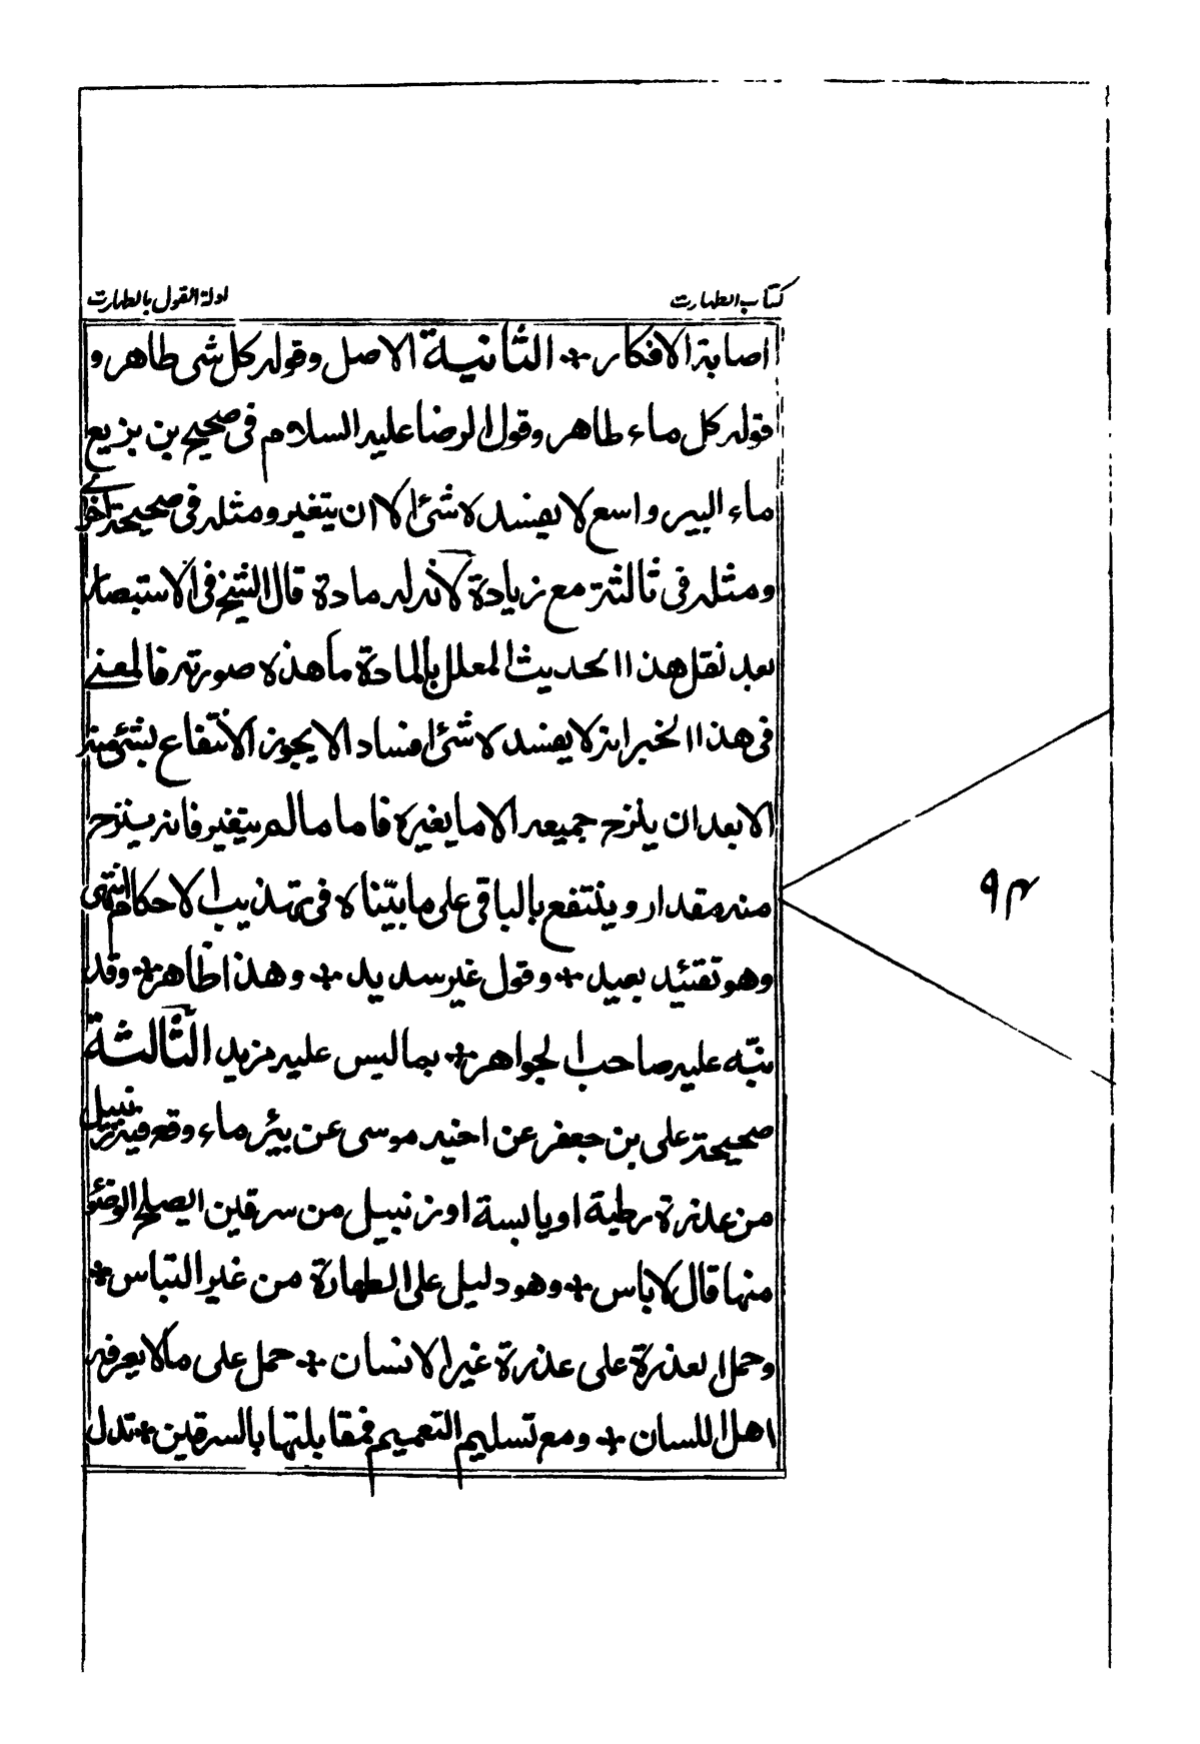 كتاب الطهارت
ادلة القول بالطهارت
اصابة الافكار + الثانية الاصل وقوله كل شى طاهر و
قوله كل ماء طاهر وقول الرضا عليه السلام فى صحيح بن بزيع
ماء البير واسع لا يفسده شئ الا ان يتغير ومثله فى صحيحة اخرے
ومثله فى ثالثة مع زيادة لانه له مادة قال الشيخ فى الاستبصار
بعد نقل هذا الحديث المعلل بالمادة ما هذه صورته فالمعنے
فى هذا الخبر انه لا يفسده شئ افسادا لا يجوز الانتفاع بشئ منه
الا بعد ان ينزح جميعه الا ما يغيره فاما ما لم يتغير فانه ينزح
منه مقدار و ينتفع بالباقى على ما بيّناه فى تهذيب الاحكام انتهى
وهو تقئيد بعيد + وقول غير سديد + وهذا ظاهر + وقد
نبّه عليه صاحب الجواهر + بما ليس عليه مزيد الثالثة
صحيحة على بن جعفر عن اخيه موسى عن بيئر ماء وقع فيه زنبيل
من عذرة رطبة او يابسة او زنبيل من سرقين ايصلح الوضئو
منها قال لاباس + وهو دليل على الطهارة من غير التباس +
وحمل العذرة على عذرة غير الانسان + حمل على مالا يعرفه
اهل اللسان + ومع تسليم التعميم فمقابلتها بالسرقين + تدل
۹۴